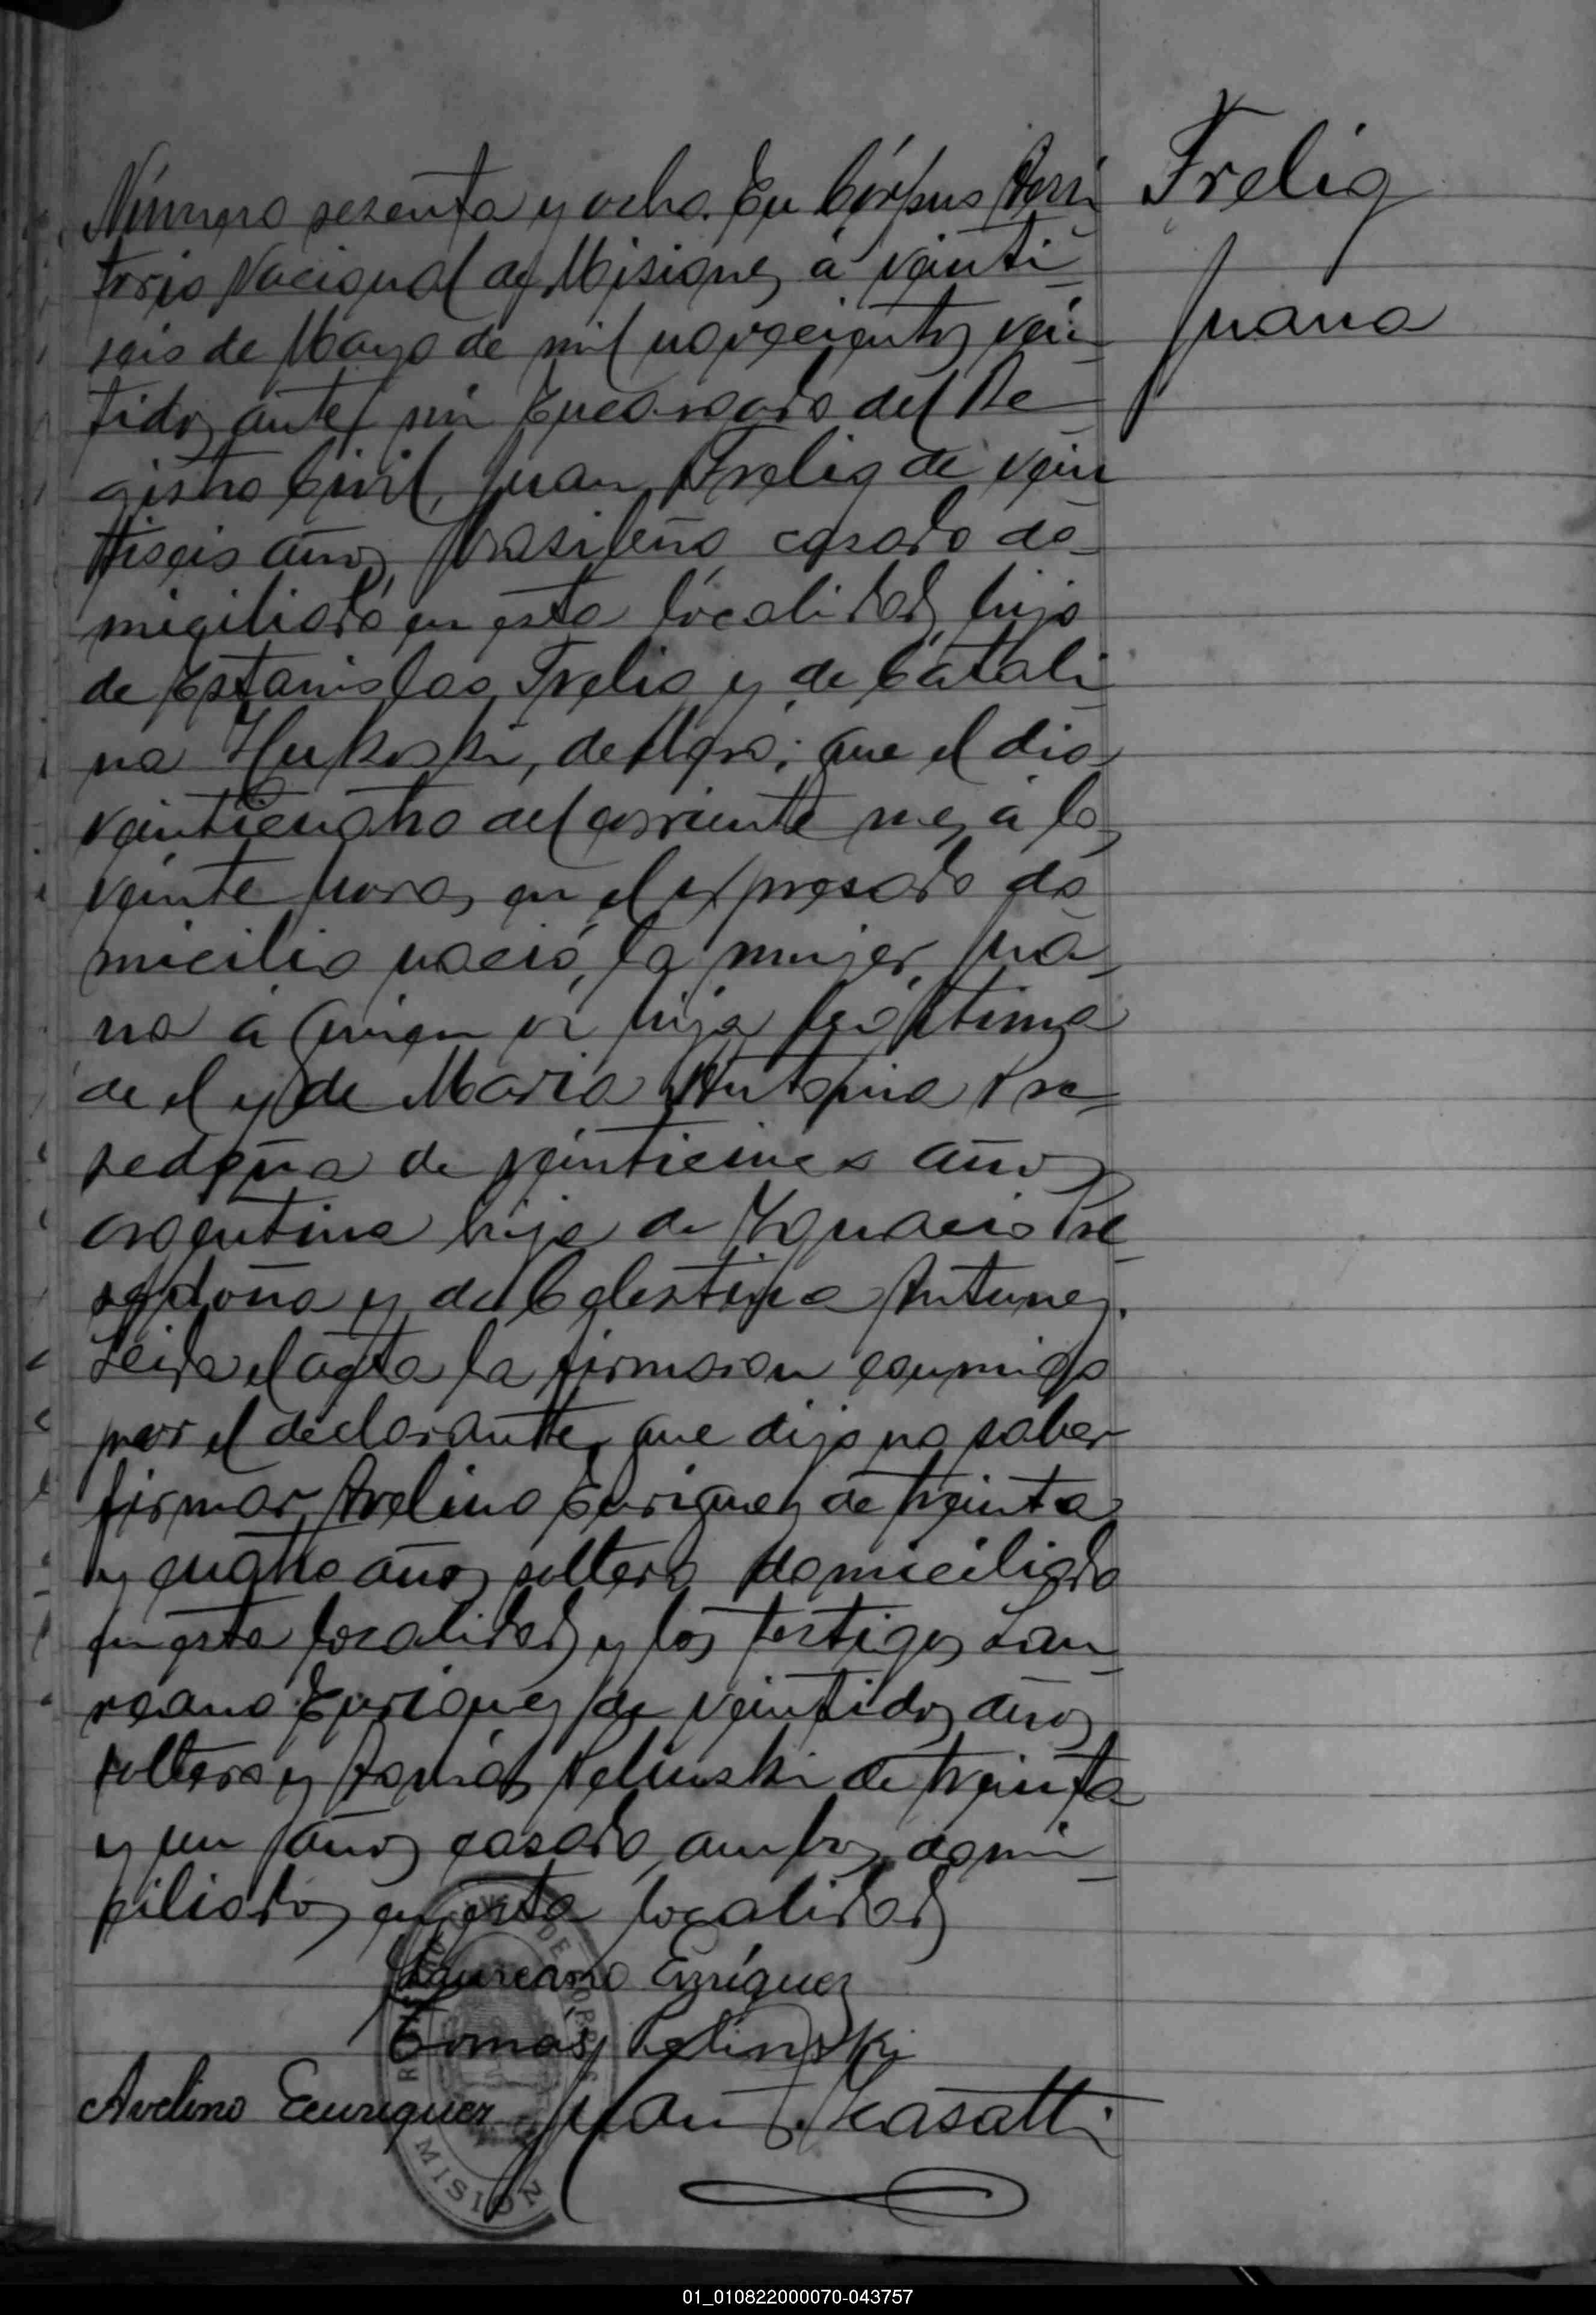 Número sesenta y ocho. En Córpus Terri
torio Nacional de Misiones á veinti
seis de Mayo de mil novecientos vein
tidos ante mi Encargado del Re
gistro Civil, Juan Frelig de vein
tiseis años, brasileño, casado do
miciliado en esta localidad, hijo
de Estanislao Frelig y de Catali
na, declaró: que el dia
veinticuatro del corriente mes á las
veinte horas en el expresado do
micilio nació la mujer Jua
na á quien vi hija legítima
de el y de Maria Antonia
de veinticinco años
argentina hija de Ygnacio
y de Celestina Antunez.
Leida el acta la firmaron conmigo
por el declarante, que dijo no saber
firmar, Avelino Enriquez de treinta
y cuatro años soltero domiciliado
en esta localidad y los testigos Lau
reano Enriquez de veintidos años
soltero y Tomás Pelinski de treinta
y un años casado, ambos domi
ciliados en esta localidad
Laureano Enríquez
Tomás Pelinski
Avelino Enriquez Juan Casatti
MISIONES
Frelig
Juana
01_010822000070-043757